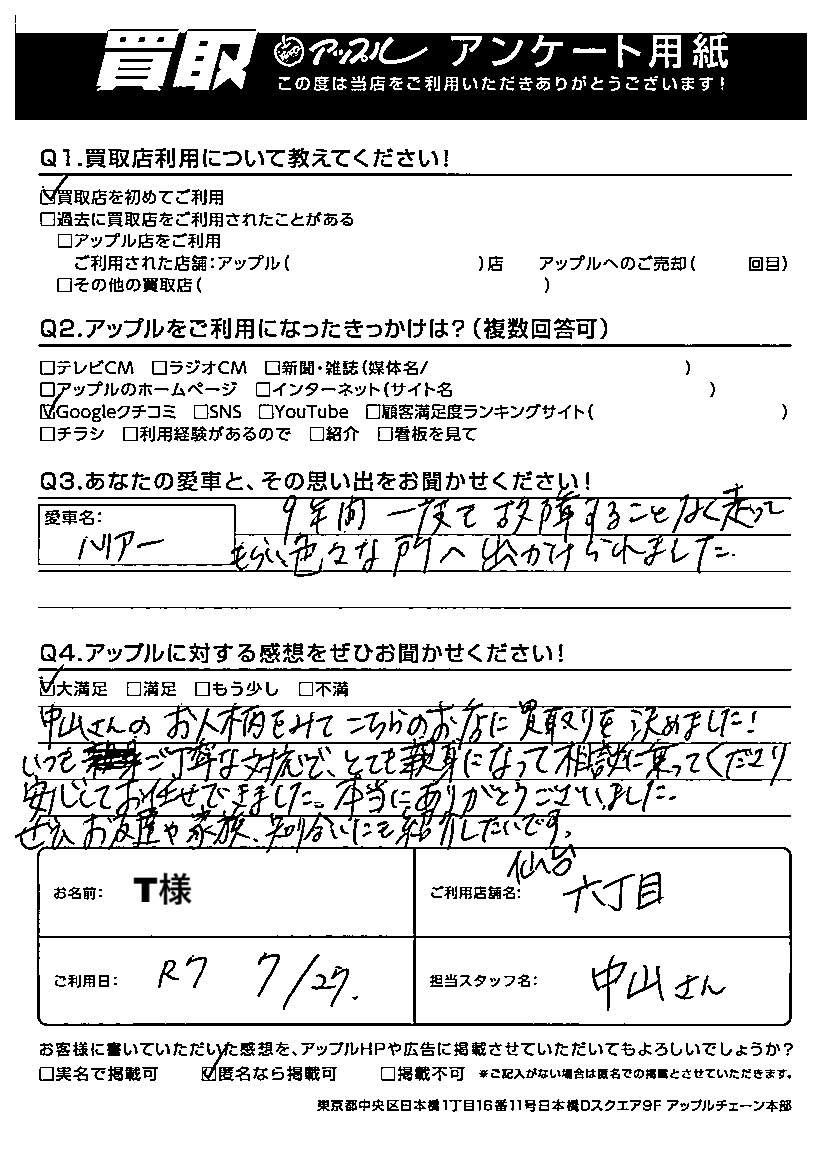 買取 アップル アンケート用紙
この度は当店をご利用いただきありがとうございます!
Q1.買取店利用について教えてください!
☑買取店を初めてご利用
□過去に買取店をご利用されたことがある
□アップル店をご利用
ご利用された店舗:アップル( )店 アップルへのご売却( 回目)
□その他の買取店( )
Q2.アップルをご利用になったきっかけは?(複数回答可)
□テレビCM □ラジオCM □新聞・雑誌(媒体名/ )
□アップルのホームページ □インターネット(サイト名 )
☑Googleクチコミ □SNS □YouTube □顧客満足度ランキングサイト( )
□チラシ □利用経験があるので □紹介 □看板を見て
Q3.あなたの愛車と、その思い出をお聞かせください!
愛車名:
ハリアー
9年間 一度て故障することなく走って
もらい色々な所へ出かけられました。
Q4.アップルに対する感想をぜひお聞かせください!
☑大満足 □満足 □もう少し □不満
中山さんのお人柄をみてこちらのお店に買取りを決めました!
いつもご丁寧な対応で、とても親身になって相談に乗ってくださり
安心してお任せできました。本当にありがとうございました。
ぜひ、お友達や家族、知り合いにも紹介したいです。
お名前: T様
ご利用店舗名: 仙台六丁目
ご利用日: R7 7/27.
担当スタッフ名: 中山さん
お客様に書いていただいた感想を、アップルHPや広告に掲載させていただいてもよろしいでしょうか?
□実名で掲載可 ☑匿名なら掲載可 □掲載不可 ※ご記入がない場合は匿名での掲載とさせていただきます。
東京都中央区日本橋1丁目16番11号日本橋Dスクエア9F アップルチェーン本部